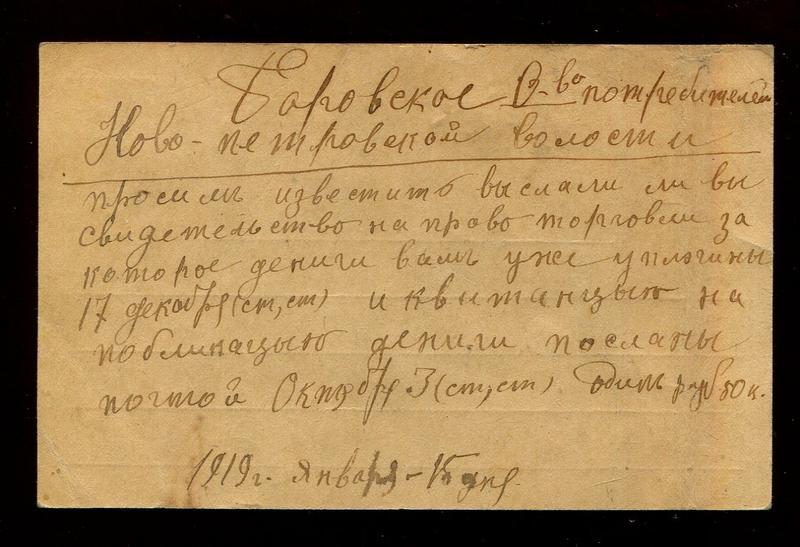 Боровское О-во потребителей
Ново-петровской волости
просимъ известить выслали ли вы
свидетельство на право торговли за
которое дениги вамъ уже уплочины
17 декабря (ст, ст) и квитанцыю на
публикацыю дениги посланы
почтой Октября 3 (ст, ст) один рубль 50 к.
1919 г. января - 15 дня